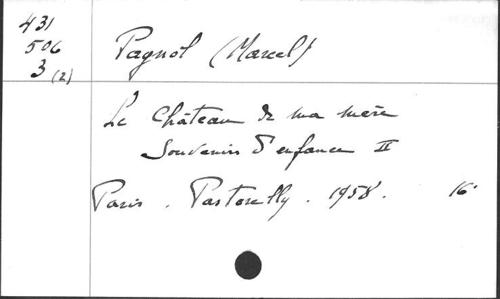 431
506
3 (2)
Pagnol (Marcel)
Le Château de ma mère
Souvenirs d'enfance II
Paris . Pastorelly . 1958 . 16°